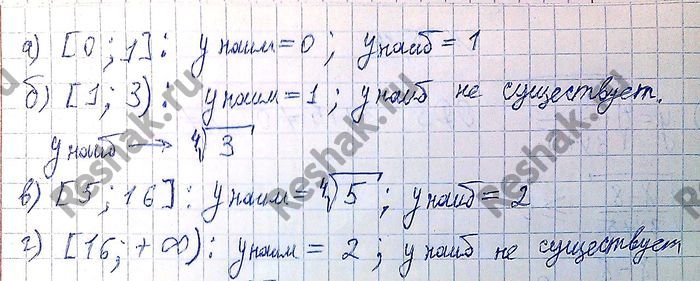 а) [0; 1]: y наим = 0; y наиб = 1
б) [1; 3): y наим = 1; y наиб не существует.
y наиб → ∜3
в) [5; 16]: y наим = ∜5; y наиб = 2
г) [16; +∞): y наим = 2; y наиб не существует
Reshak.ru